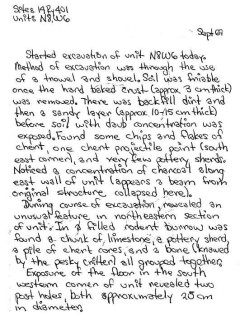 Sites 14P,401
Units N8W6
Sept 09
Started excavation of unit N8W6 today.
Method of excavation was through the use
of a trowel and shovel. Soil was friable
once the hard baked crust (approx 3 cm thick)
was removed. There was backfill dirt and
then a sandy layer (approx 10-15 cm thick)
before soil with daub concentration was
exposed. Found some chips and flakes of
chert, one chert projectile point (south
east corner), and very few pottery sherds.
Noticed a concentration of charcoal along
east wall of unit (appears a beam from
original structure collapsed here).
During course of excavation, revealed an
unusual feature in northeastern section
of unit. In a filled rodent burrow was
found a chunk of limestone, a pottery sherd,
a pile of chert cores, and a bone (gnawed
by the pesky critter) all grouped together.
Exposure of the floor in the south
western corner of unit revealed two
post holes, both approximately 20 cm
in diameter.